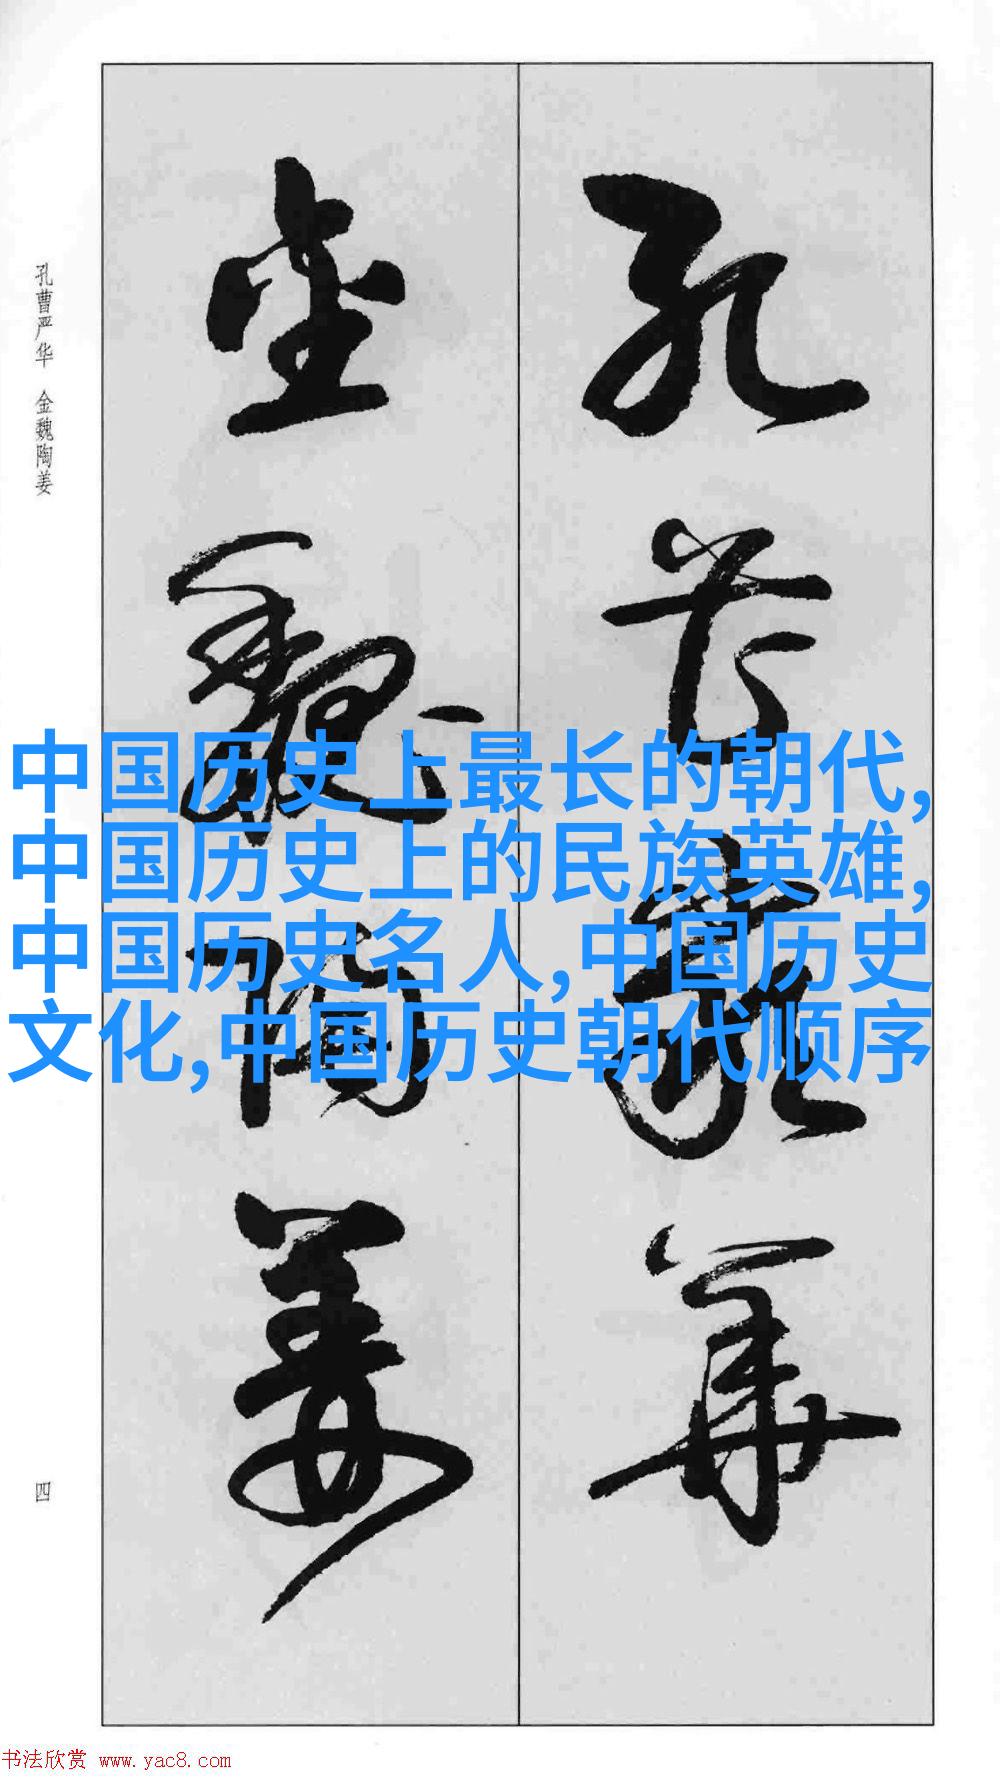 孔曹严华
金魏陶姜
孔曹严华 金魏陶姜
中国历史上最长的朝代,
中国历史上的民族英雄,
中国历史名人,中国历史
文化,中国历史朝代顺序
四
书法欣赏 www.yac8.com